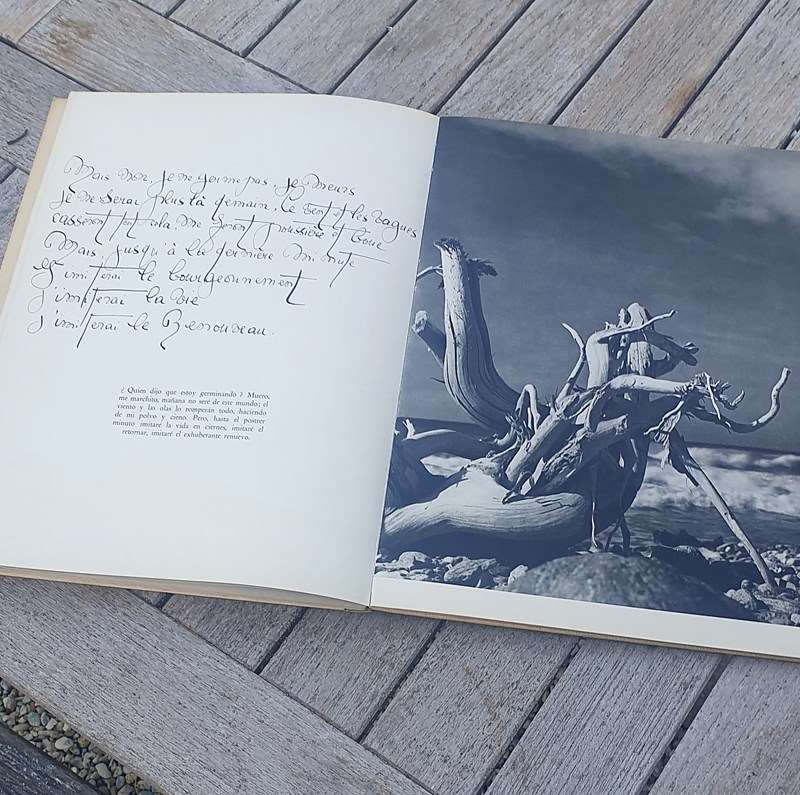 Mais non, je ne germe pas. Je meurs
je ne serai plus là demain. Le vent et les vagues
casseront tout cela, me feront poussière et boue
Mais, jusqu'à la dernière minute
J'imiterai le bourgeonnement
j'imiterai la vie
j'imiterai le Renouveau.
¿ Quien dijo que estoy germinando ? Muero,
me marchito, mañana no seré de este mundo; el
viento y las olas lo romperan todo, haciendo
de mi polvo y cieno. Pero, hasta el postrer
minuto imitaré la vida en ciernes, imitaré el
retornar, imitaré el exhuberante renuevo.